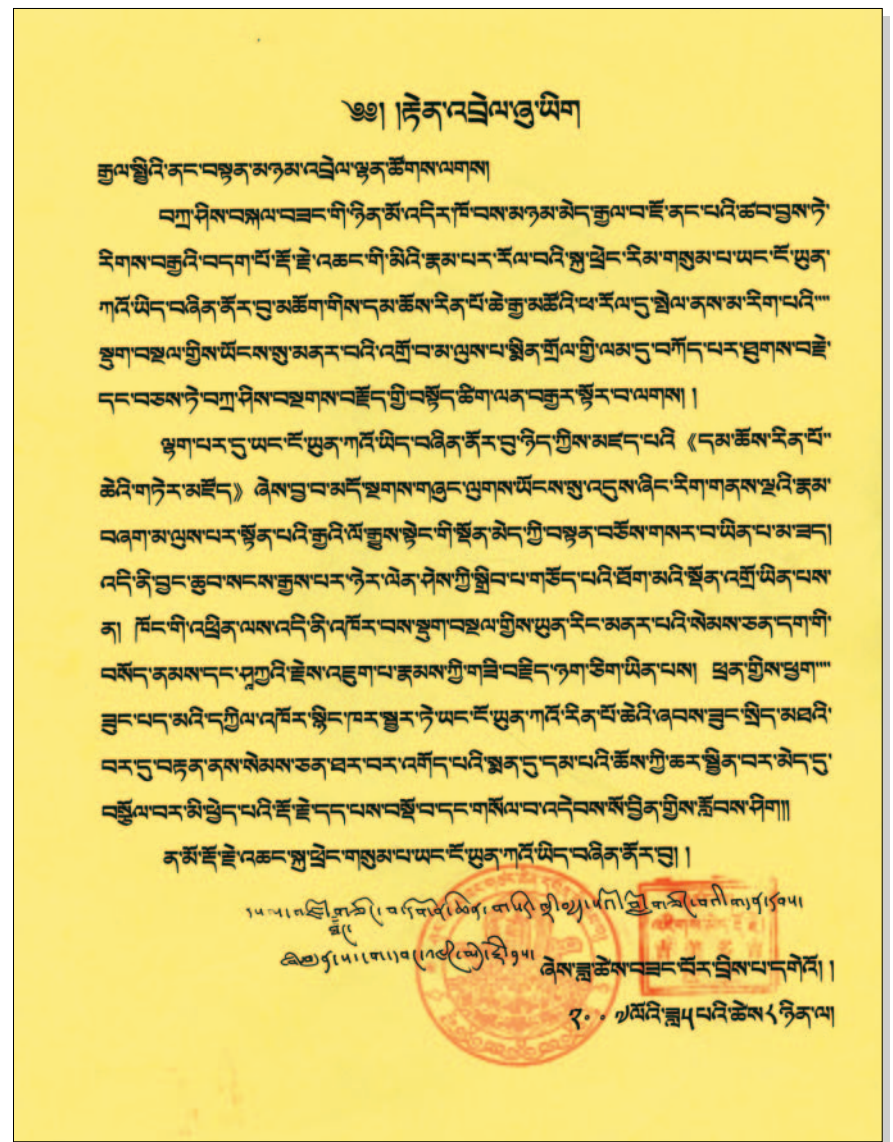 ༄༅། །རྟེན་འབྲེལ་ཞུ་ཡིག
རྒྱལ་སྤྱིའི་ནང་བསྟན་མཉམ་འབྲེལ་ལྷན་ཚོགས་ལགས།
བཀྲ་ཤིས་བསྐལ་བཟང་གི་ཉིན་མོ་འདིར་ཁོ་བས་མཉམ་མེད་རྒྱལ་བ་ཇོ་ནང་པའི་ཚབ་བྱས་ཏེ་
རིགས་བརྒྱའི་བདག་པོ་རྡོ་རྗེ་འཆང་གི་མིའི་རྣམ་པར་རོལ་བའི་སྐུ་ཕྲེང་རིམ་གསུམ་པ་ཡང་ངོ་ཡུན་
ཀའོ་ཡིད་བཞིན་ནོར་བུ་མཆོག་གིས་དམ་ཆོས་རིན་པོ་ཆེ་རྒྱ་མཚོའི་ཕ་རོལ་དུ་སྤེལ་ནས་མ་རིག་པའི་
སྡུག་བསྔལ་གྱིས་ཡོངས་སུ་མནར་བའི་འགྲོ་བ་མ་ལུས་པ་སྨིན་གྲོལ་གྱི་ལམ་དུ་བཀོད་པར་ཐུགས་བརྩེ་
དང་བཅས་ཏེ་བཀྲ་ཤིས་བསྔགས་བརྗོད་ཀྱི་བསྟོད་ཚིག་ལན་བརྒྱར་སྟོར་བ་ལགས། །
ལྷག་པར་དུ་ཡང་ངོ་ཡུན་ཀའོ་ཡིད་བཞིན་ནོར་བུ་ཉིད་ཀྱིས་མཛད་པའི 《དམ་ཆོས་རིན་པོ་
ཆེའི་གཏེར་མཛོད》 ཞེས་བྱ་བ་མདོ་སྔགས་གཞུང་ལུགས་ཡོངས་སུ་འདུས་ཞིང་རིག་གནས་ལྔའི་རྣམ་
བཞག་མ་ལུས་པར་སྟོན་པའི་རྒྱའི་ལོ་རྒྱུས་སྟེང་གི་སྔོན་མེད་ཀྱི་བསྟན་བཅོས་གསར་བ་ཡིན་པ་མ་ཟད།
འདི་ནི་བྱང་ཆུབ་སངས་རྒྱས་པར་ཉེར་ལེན་ཤེས་ཀྱི་སྒྲིབ་པ་གཅོད་པའི་ཐོག་མའི་སྔོན་འགྲོ་ཡིན་པས་
ན། ཁོང་གི་འཕྲིན་ལས་འདི་ནི་འཁོར་བས་སྡུག་བསྔལ་གྱིས་ཡུན་རིང་མནར་པའི་སེམས་ཅན་དག་གི་
བསོད་ནམས་དང་ཤཱཀྱའི་རྗེས་འཇུག་པ་རྣམས་ཀྱི་གཟི་བརྗིད་ཉག་ཅིག་ཡིན་པས། ཕྲན་གྱིས་ཕྱག་
ཟུང་པད་མའི་དཀྱིལ་འཁོར་སྙིང་ཁར་སྦྱར་ཏེ་ཡང་ངོ་ཡུན་ཀའོ་རིན་པོ་ཆེའི་ཞབས་ཟུང་སྲིད་མཐའི་
བར་དུ་བརྟན་ནས་སེམས་ཅན་ཐར་བར་འགོད་པའི་སླན་དུ་དམ་པའི་ཆོས་ཀྱི་ཆར་སྦྱིན་བར་མེད་དུ་
བསྩོལ་བར་མི་ཕྱེད་པའི་རྡོ་རྗེ་དད་པས་བསྔོ་བ་དང་གསོལ་བ་འདེབས་སོ་བྱིན་གྱིས་རློབས་ཤིག།།
ན་མོ་རྡོ་རྗེ་འཆང་སྐུ་ཕྲེང་གསུམ་པ་ཡང་ངོ་ཡུན་ཀའོ་ཡིད་བཞིན་ནོར་བུ། །
ཞེས་ཟླ་ཚེས་བཟང་པོར་བྲིས་པ་དགེའོ། །
༢༠༠༧ལོའི་ཟླ༥པའི་ཚེས༨ཉིན་ལ།